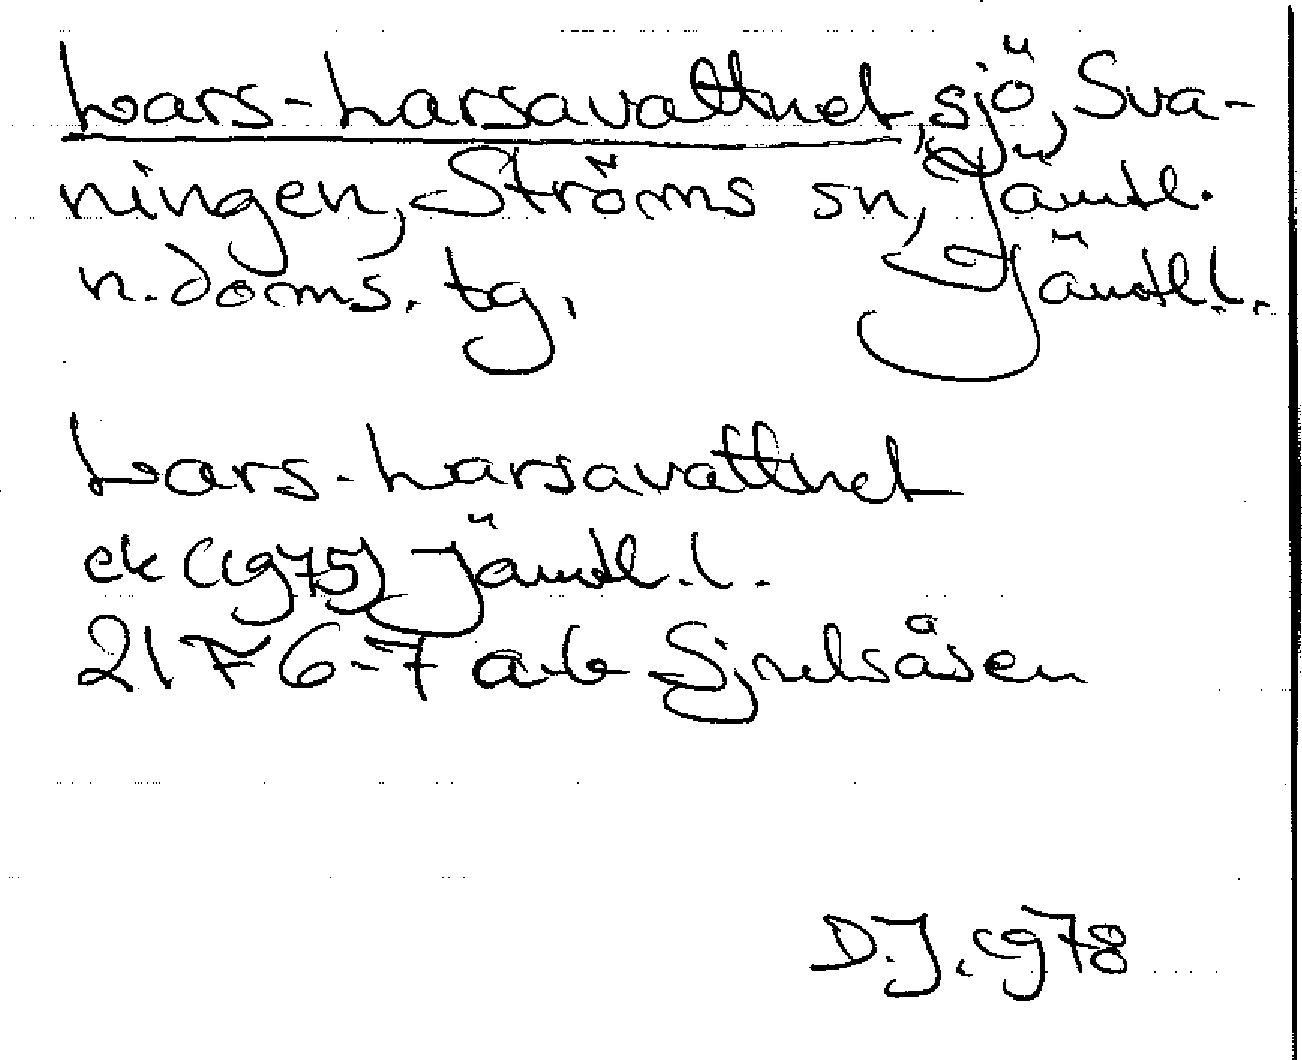 Lars-Larsavattnet, sjö, Sva-
ningen, Ströms sn, Jämtl.
n. doms. tg. Jämtl l.
Lars-Larsavattnet
ek (1975) Jämtl. l.
21 F 6-7 a-b Sjulsåsen
D.J. 1978